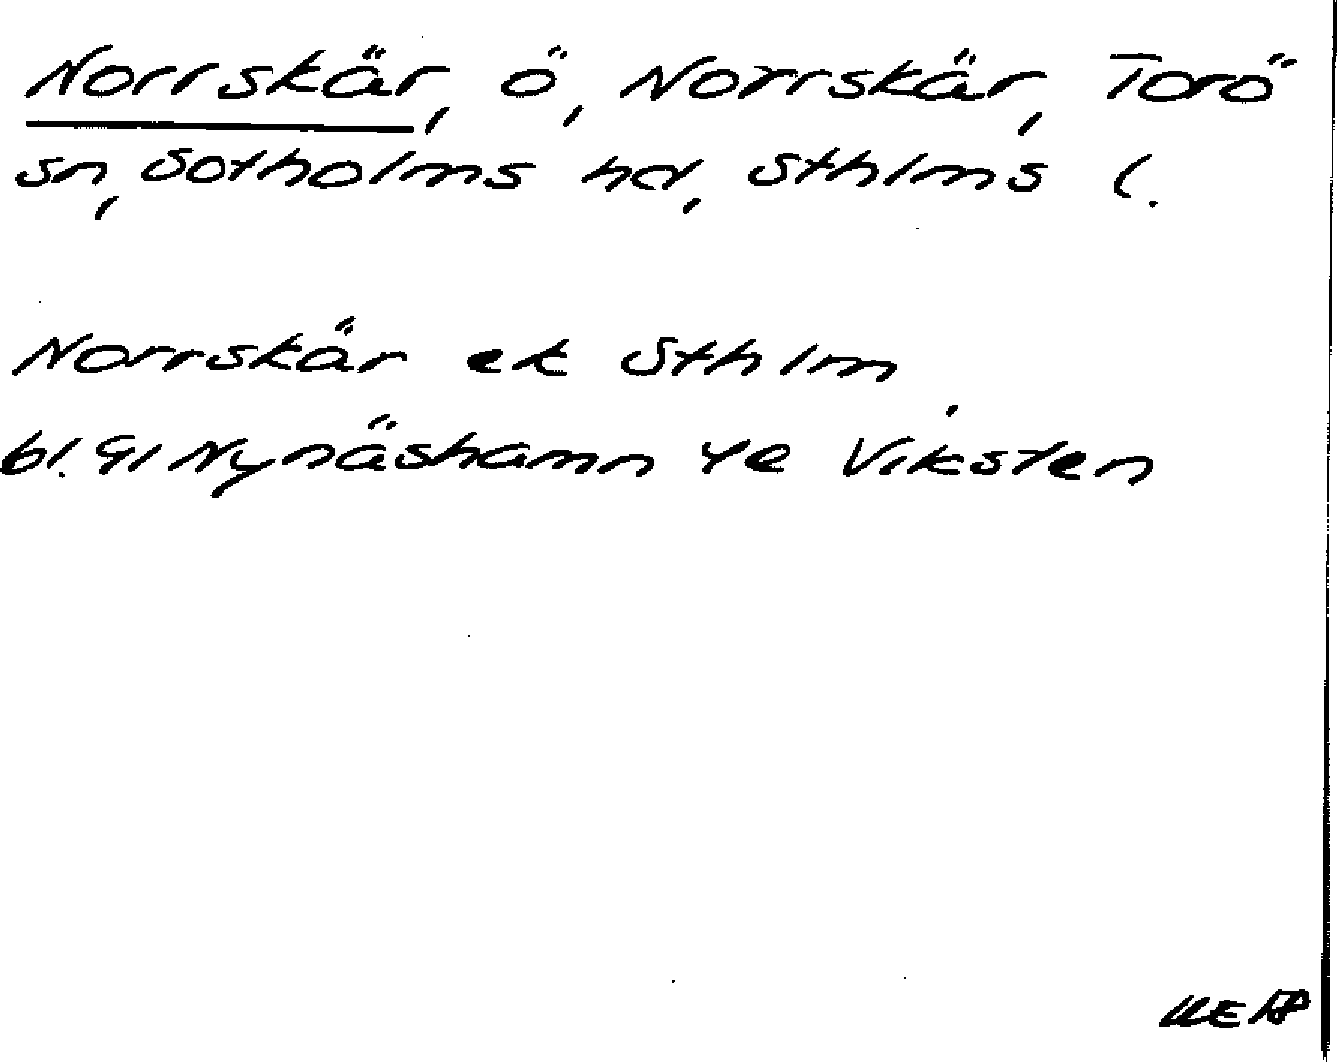 Norrskär, ö, Norrskär, Torö
sn, Sotholms hd, Sthlms l.
Norrskär ek Sthlm
bl. 9I Nynäshamn 4e Viksten